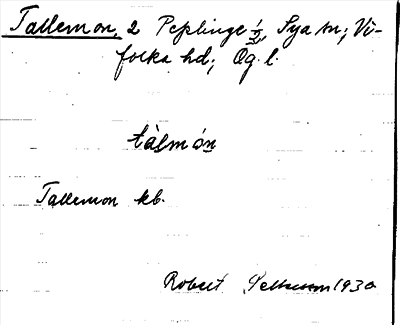 Tallemon, 2 Peplinge 1/2, Sya sn; Vi-
folka hd; Ög. l.
tàlmón
Tallemon kb.
Robert 1930